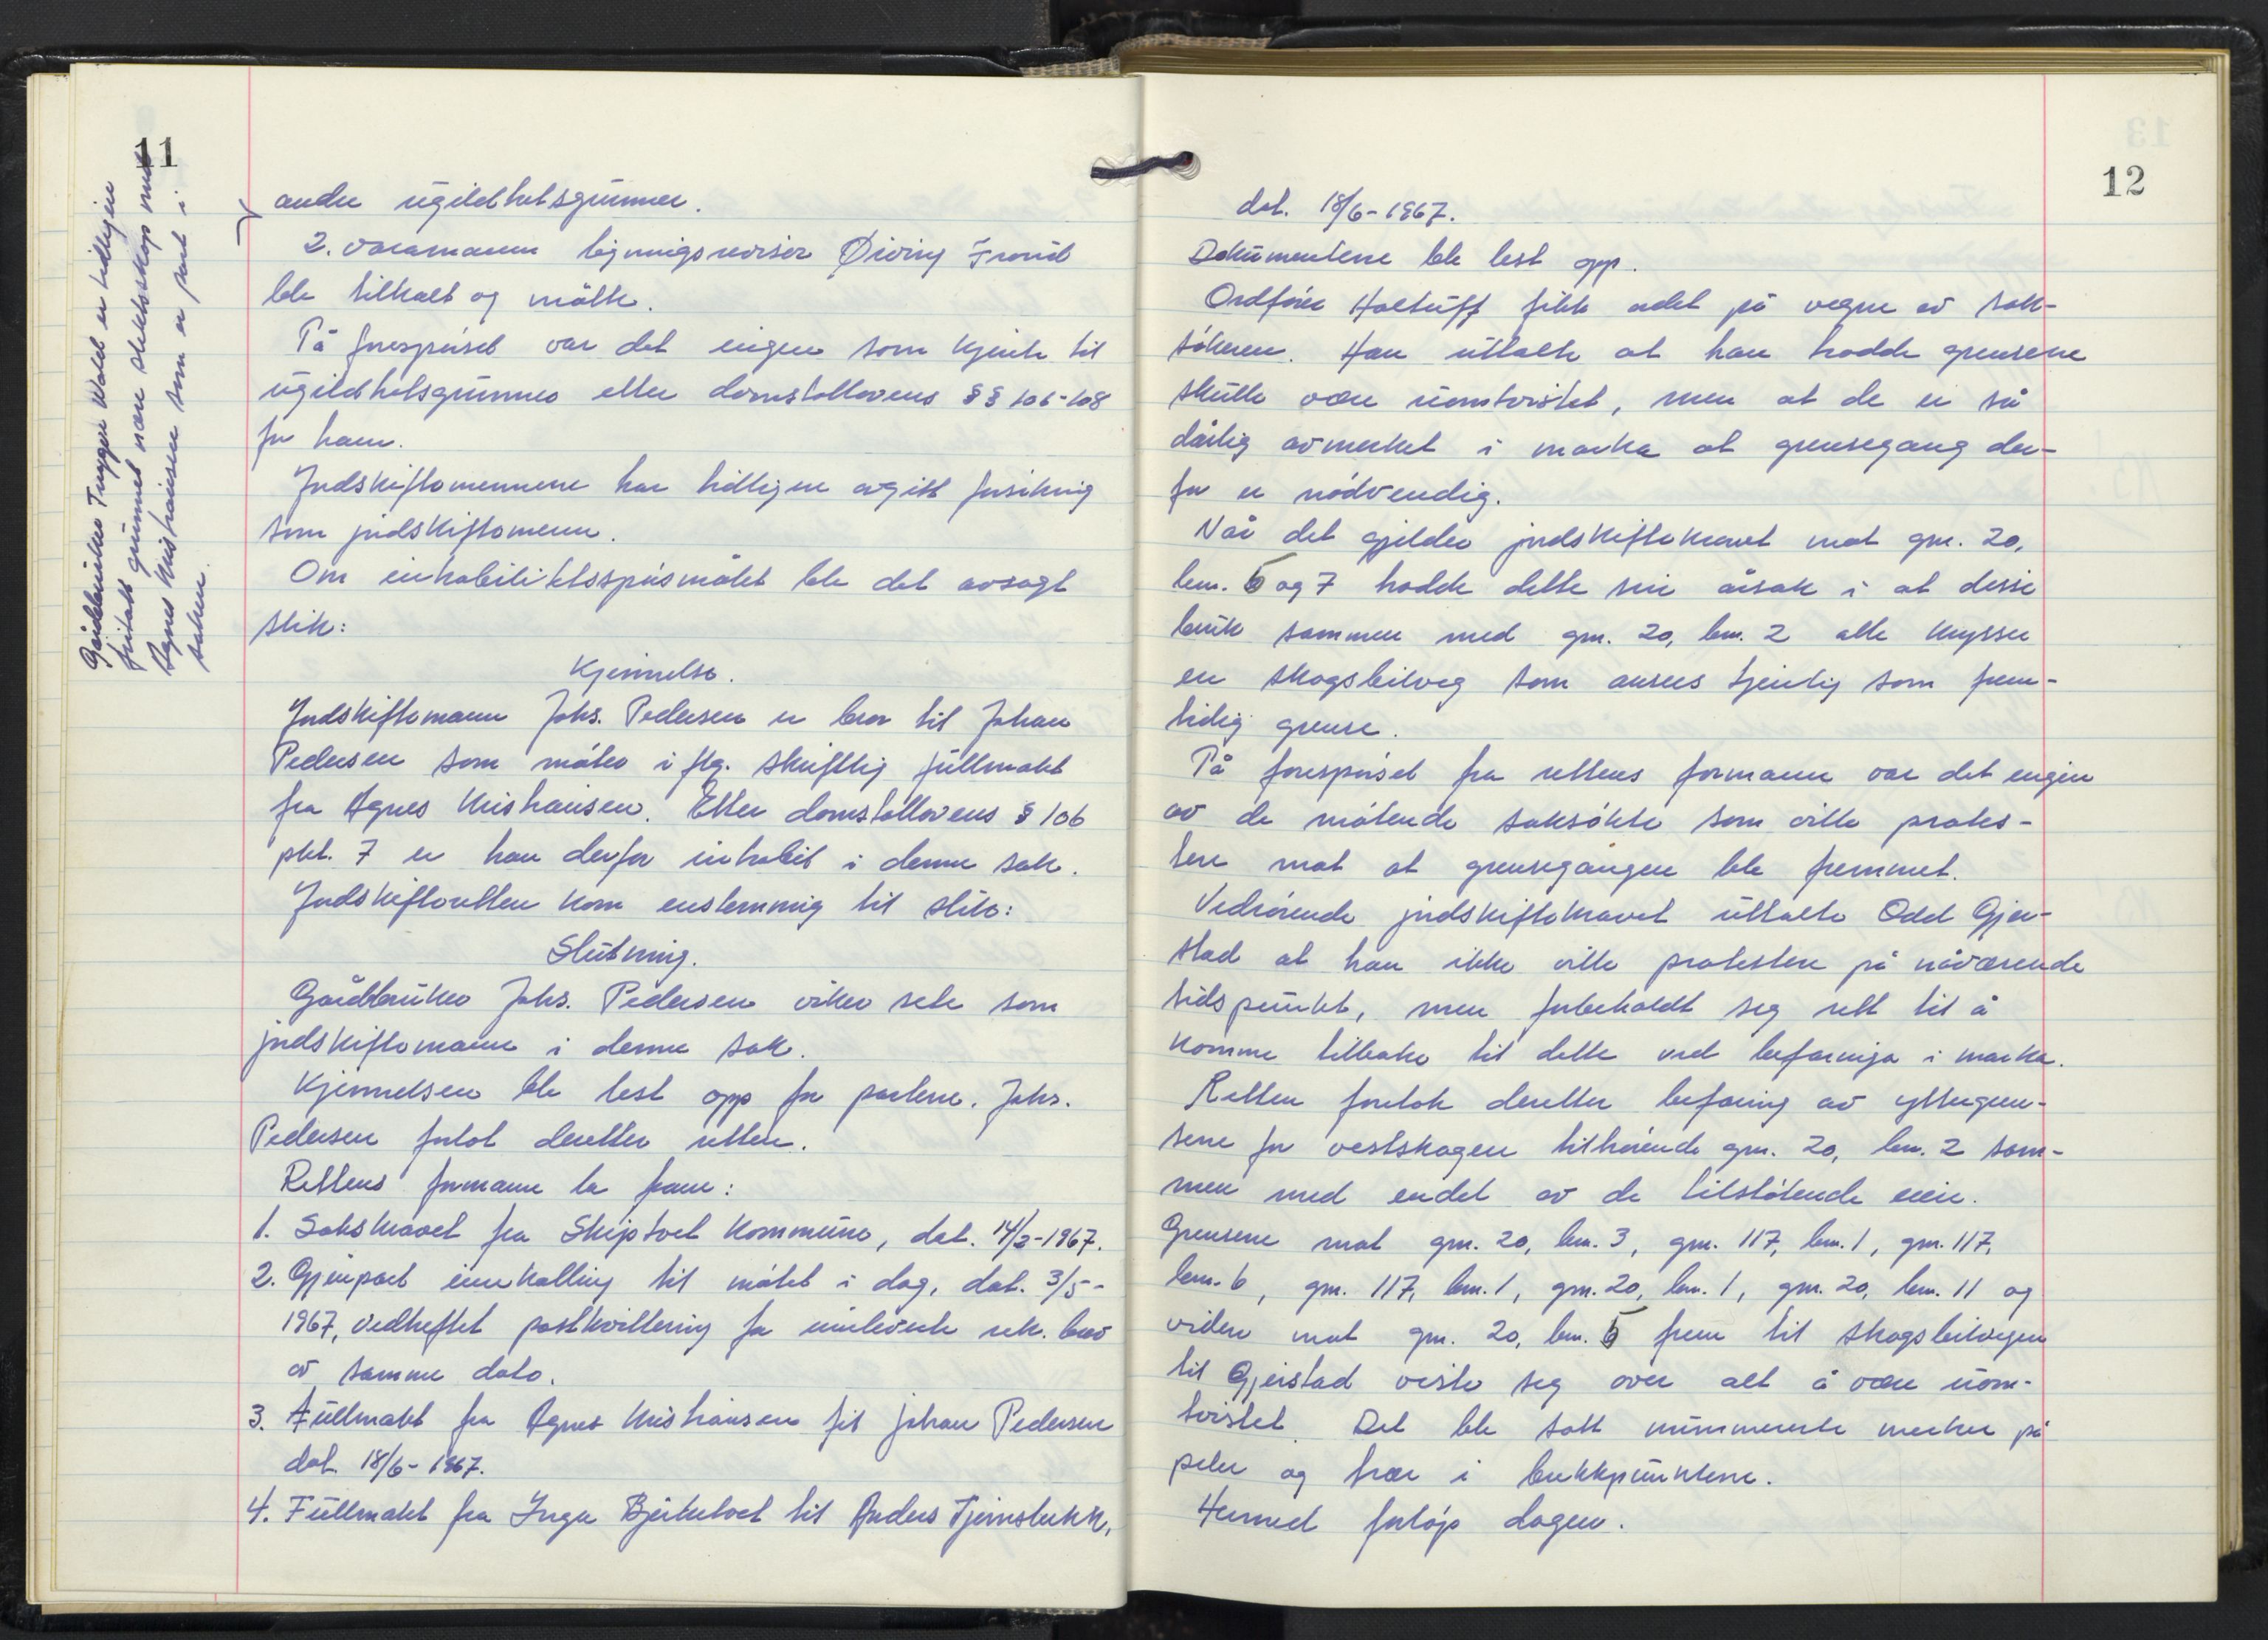 11
Gårdbruker Trygve Wold er tidligere
fritatt grunnet nær slektskap med
Agnes Kristiansen som er part i
saken.
andre ugildhetsgrunner.
2. varamann ligningsrevisor Øiving Frorud
ble tilkalt og møtte.
På forespørsel var det ingen som kjente til
ugildhetsgrunner etter domstollovens §§ 106-108
for ham.
Jordskiftemennene har tidligere avgitt forsikring
som jordskiftemenn.
Om inhabilitetsspørsmålet ble det avsagt
slik:
Kjennelse.
Jordskiftemann Johs. Pedersen er bror til Johan
Pedersen som møter i flg. skriftlig fullmakt
fra Agnes Kristiansen. Etter domstollovens § 106
pkt. 7 er han derfor inhabil i denne sak.
Jordskifteretten kom enstemmig til slik:
Slutning.
Gårdbruker Johs. Pedersen viker sete som
jordskiftemann i denne sak.
Kjennelsen ble lest opp for partene. Johs.
Pedersen forlot deretter retten.
Rettens formann la fram:
1. Sakskravet fra Skiptvet kommune, dat. 14/3-1967.
2. Gjenpart innkalling til møtet i dag, dat. 3/5-
1967, vedheftet postkvittering for innleverte rek. brev
av samme dato.
3. Fullmakt fra Agnes Kristiansen til Johan Pedersen
dat. 18/6-1967.
4. Fullmakt fra Inga Bjerketvet til Anders Tjernsbekk,
12
dat. 18/6-1967.
Dokumentene ble lest opp.
Ordfører Holtuff fikk ordet på vegne av sak-
søkeren. Han uttalte at han trodde grensene
skulle være uomtvistet, men at de er så
dårlig avmerket i marka at grensegang der-
for er nødvendig.
Når det gjelder jordskiftekravet mot gnr. 20,
bnr. 5 og 7 hadde dette sin årsak i at disse
bruk sammen med gnr. 20, bnr. 2 alle krysser
en skogsbilveg som ansees tjenlig som frem-
tidig grense.
På forespørsel fra rettens formann var det ingen
av de møtende saksøkte som ville protes-
tere mot at grensegangen ble fremmet.
Vedrørende jordskiftekravet uttalte Odd Gjer-
stad at han ikke ville protestere på nåværende
tidspunkt, men forbeholdt seg rett til å
komme tilbake til dette ved befaringa i marka.
Retten foretok deretter befaring av yttergren-
sene for vestskogen tilhørende gnr. 20, bnr. 2 sam-
men med endel av de tilstøtende eiere.
Grensene mot gnr. 20, bnr. 3, gnr. 117, bnr. 1, gnr. 117,
bnr. 6, gnr. 117, bnr. 1, gnr. 20, bnr. 1, gnr. 20, bnr. 11 og
videre mot gnr. 20, bnr. 5 frem til skogsbilvegen
til Gjerstad viste seg over alt å være uom-
tvistet. Det ble satt nummererte merker på
peler og trær i brekkpunktene.
Hermed forløp dagen.